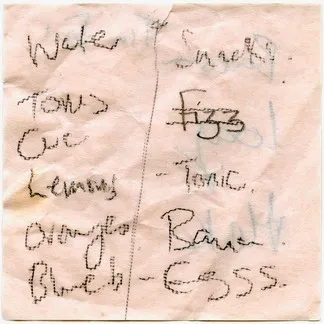 Water
Toms
Cuc
Lemons
Oranges
Blueb
Snacks.
Fizz
- Tonic.
- Eggs.